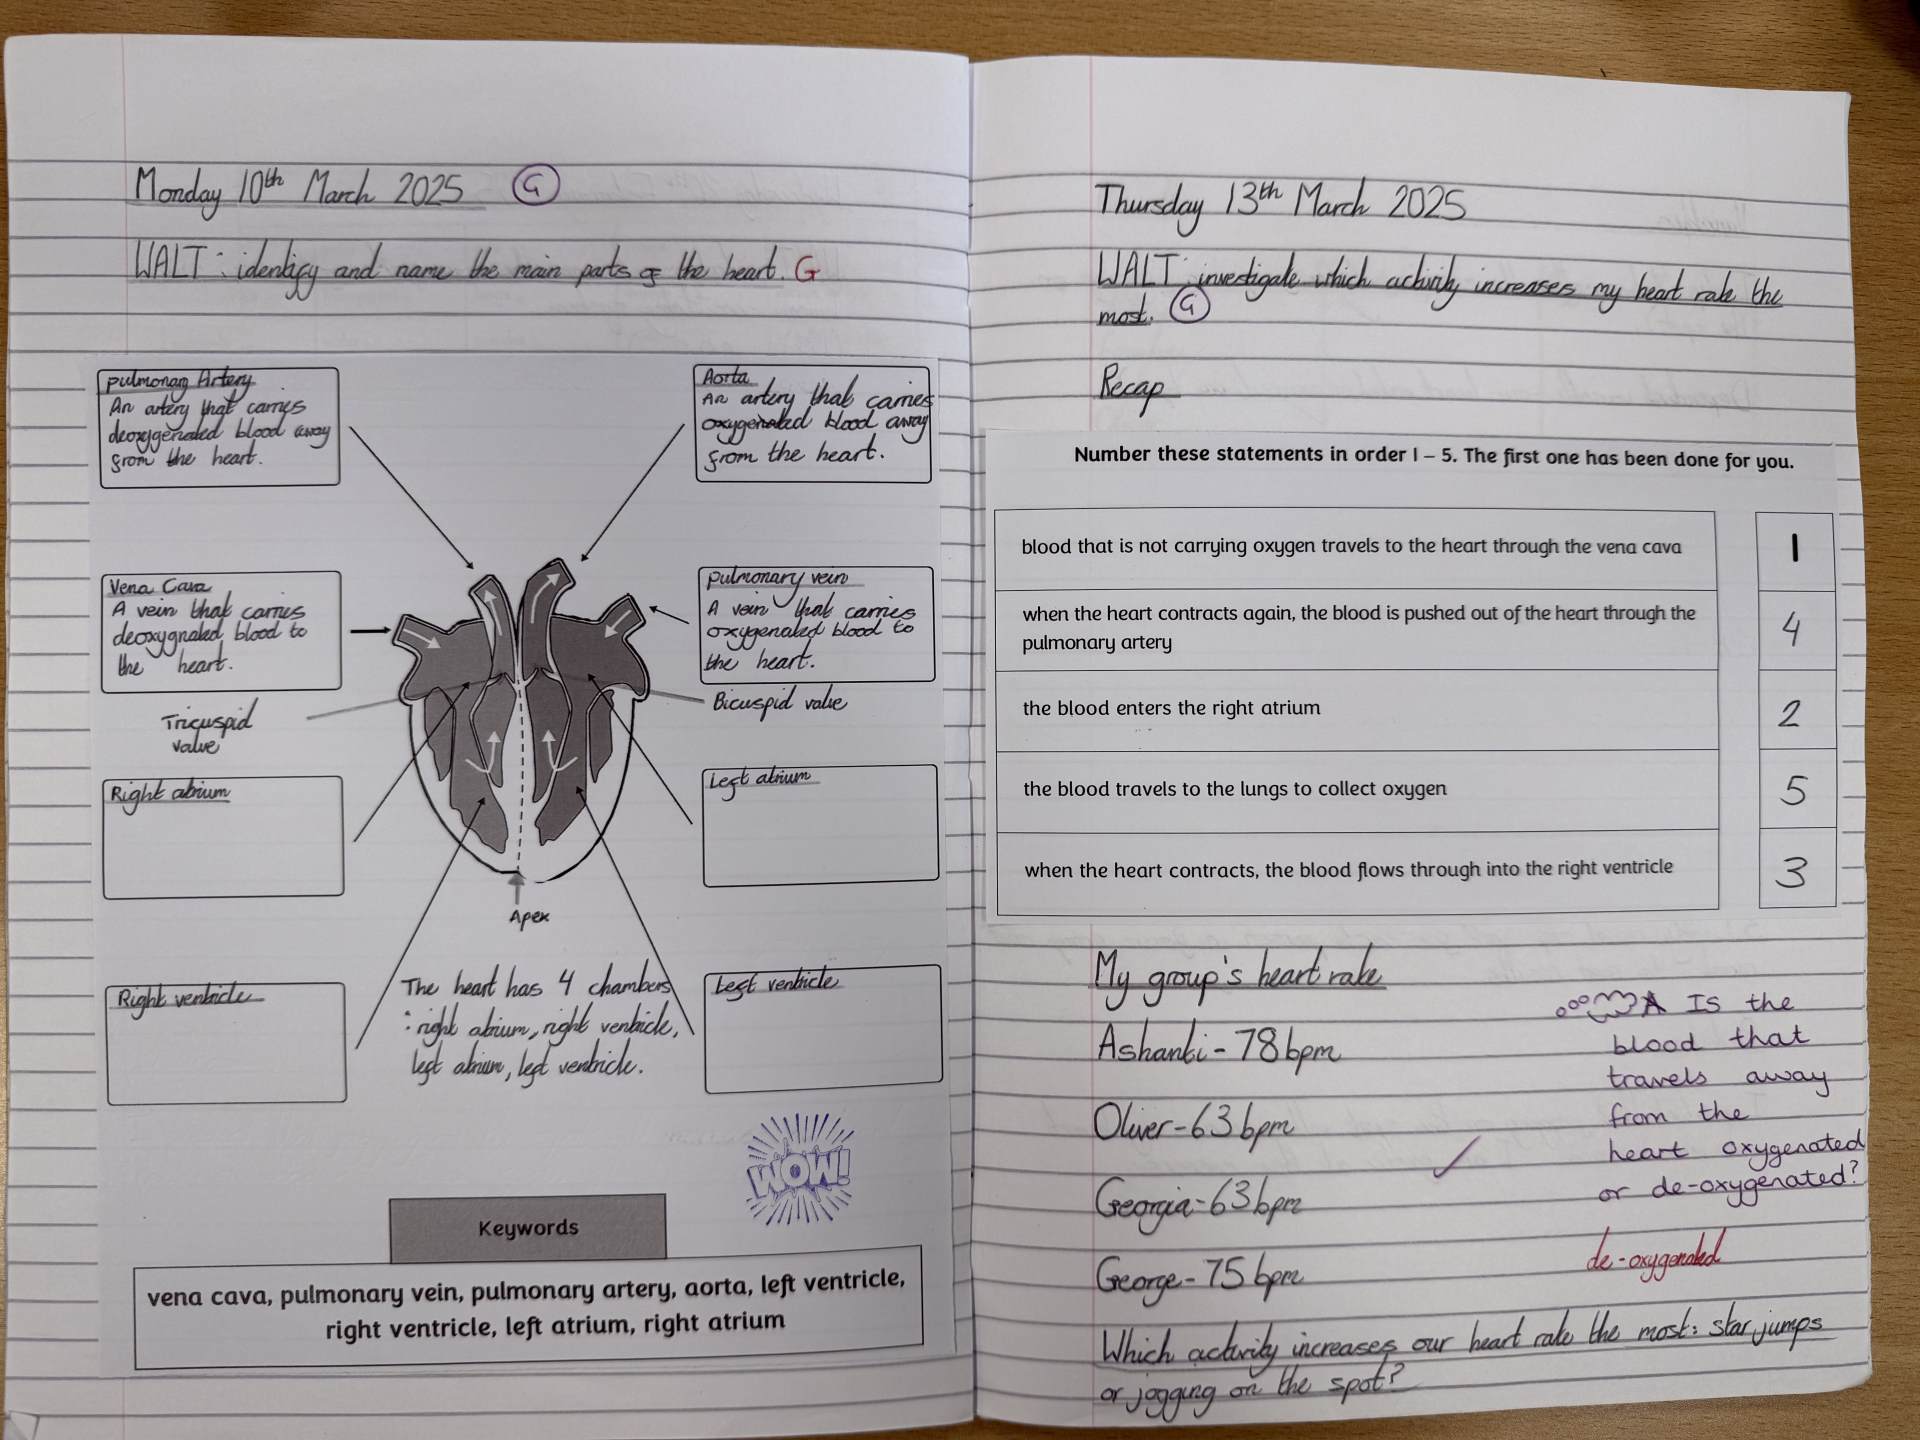 Monday 10th March 2025 G
WALT: identify and name the main parts of the heart. G
Pulmonary Artery
An artery that carries
deoxygenated blood away
from the heart.
Aorta
An artery that carries
oxygenated blood away
from the heart.
Vena Cava
A vein that carries
deoxygnated blood to
the heart.
Pulmonary vein
A vein that carries
oxygenated blood to
the heart.
Tricuspid
valve
Bicuspid valve
Right atrium
Left atrium
Apex
Right ventricle
Left ventricle
The heart has 4 chambers
: right atrium, right ventricle,
left atrium, left ventricle.
WOW!
Keywords
vena cava, pulmonary vein, pulmonary artery, aorta, left ventricle,
right ventricle, left atrium, right atrium
Thursday 13th March 2025
WALT: investigate which activity increases my heart rate the
most. G
Recap
Number these statements in order 1 – 5. The first one has been done for you.
blood that is not carrying oxygen travels to the heart through the vena cava 1
when the heart contracts again, the blood is pushed out of the heart through the
pulmonary artery 4
the blood enters the right atrium 2
the blood travels to the lungs to collect oxygen 5
when the heart contracts, the blood flows through into the right ventricle 3
My group's heart rate
Ashanti - 78 bpm
Oliver - 63 bpm
Georgia - 63 bpm
George - 75 bpm
Is the
blood that
travels away
from the
heart oxygenated
or de-oxygenated?
de-oxygenated
Which activity increases our heart rate the most: star jumps
or jogging on the spot?